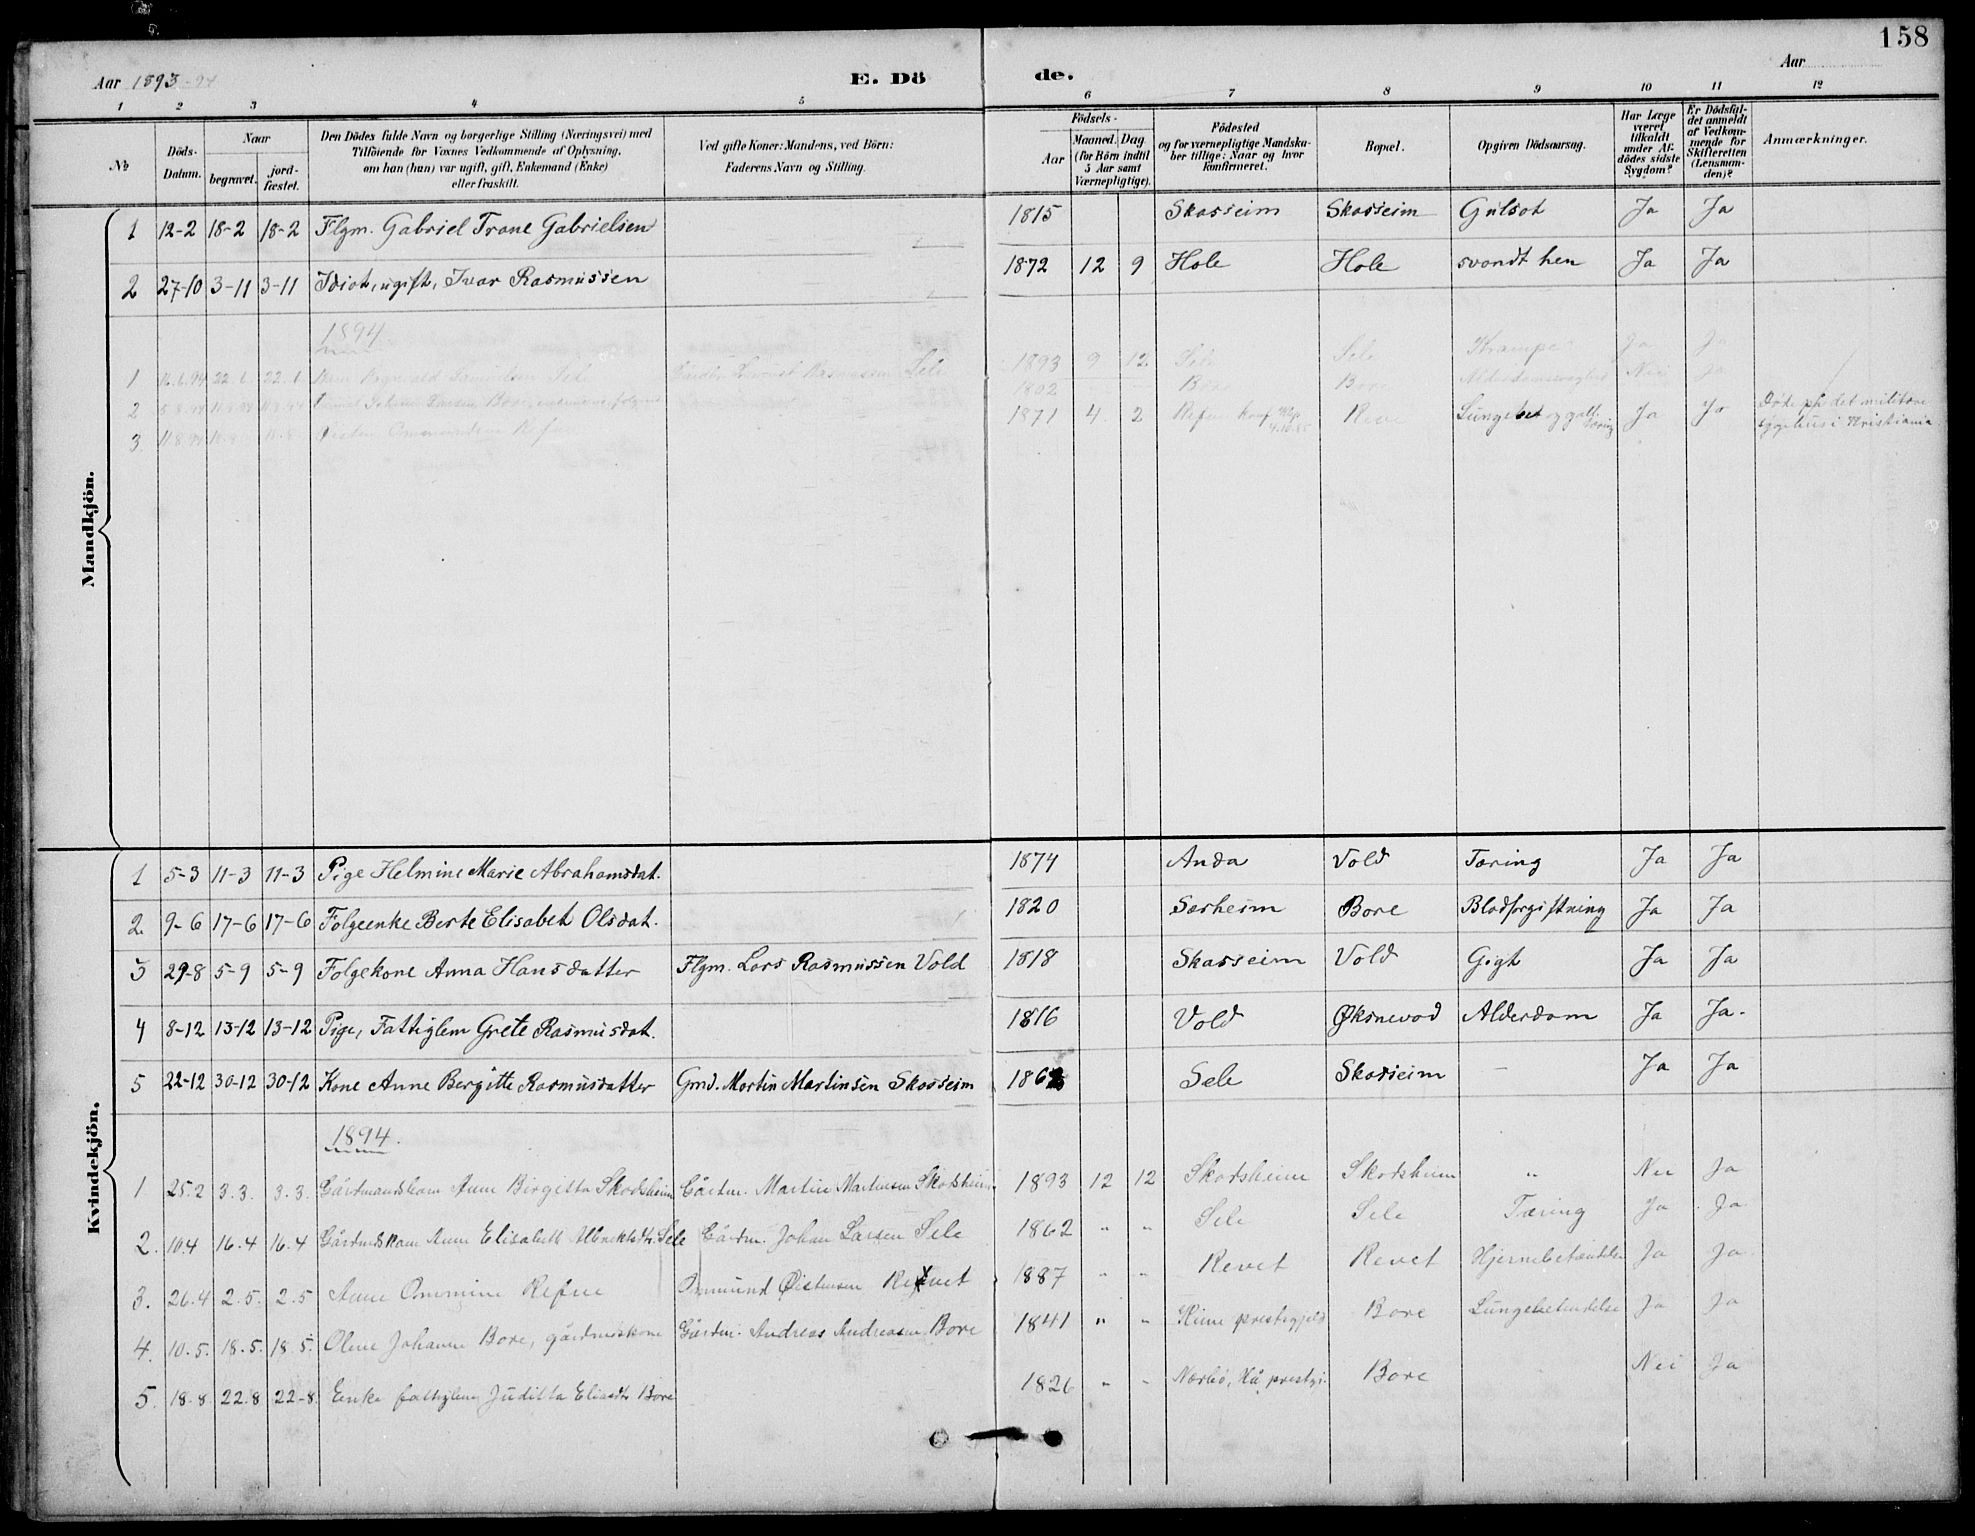 158
Aar 1893-94 E. Dö de. Aar
1 2 3 4 5 6 7 8 9 10 11 12
№ Döds-Datum. Naar begravet. jord-fæstet. Den Dödes fulde Navn og borgerlige Stilling (Næringsvei) med Tilföiende for Voxnes Vedkommende af Oplysning, om han (hun) var ugift, gift, Enkemand (Enke) eller fraskilt. Ved gifte Koner: Mandens, ved Börn: Faderens Navn og Stilling. Födsels- Aar Maaned. Dag. (for Börn indtil 5 Aar samt Værnepligtige). Födested og for værnepligtige Mandskaber tillige: Naar og hvor konfirmeret. Bopæl. Opgiven Dödsaarsag. Har Læge været tilkaldt under Afdödes sidste Sygdom? Er Dödsfaldet anmeldt af Vedkommende for Skifteretten (Lensmanden)? Anmærkninger.
Mandkjön.
1 12-2 18-2 18-2 Flgm. Gabriel Trane Gabrielsen 1815 Skasseim Skasseim Gulsot Ja Ja
2 27-10 3-11 3-11 Idiot, ugift, Ivar Rasmussen 1872 12 9 Hole Hole svandt hen Ja Ja
1894
1 22.6 22.6 Sele Sele 1893 9 12 Sele Sele Krampe Ja Ja
2 1802 Bore Bore Alderdomssvaghed Nei Ja
3. 11.8.94 Refne 1871 4 2 Refne konf Reve Lungebet og gall. tæring Ja Ja Døde på det militære sygehus i Kristiania
Kvindekjön.
1 5-3 11-3 11-3 Pige Helmine Marie Abrahamsdat. 1874 Anda Vold Tæring Ja Ja
2. 9-6 17-6 17-6 Folgeenke Berte Elisabet Olsdat. 1820 Særheim Bore Blodforgiftning Ja Ja
3 29-8 5-9 5-9 Folgekone Anna Hansdatter Flgm. Lars Rasmussen Vold 1818 Skasseim Vold Gigt Ja Ja
4 8-12 13-12 13-12 Pige, Fattiglem Grete Rasmusdat. 1816 Vold Øksnevad Alderdom Ja Ja.
5 22-12 30-12 30-12 Kone Anne Bergitte Rasmusdatter Gmd. Martin Martinsen Skasseim 1862 Sele Skasseim – Ja Ja
1894.
1 25.2 3.3. 3.3. Gårdmandsbarn Anne Birgitta Skadsheim Gårdm. Martin Martinsen Skadsheim 1893 12 12 Skadsheim Skadsheim " Nei Ja
2. 10.4 16.4 16.4 Anne Elisabeth Sele Gårdm. Johan Larsen Sele 1862 " " Sele Sele Tæring Ja Ja
3. 26.4 2.5. 2.5 Anne Ommine Refne Osmund Øistensen Revet 1887 " " Revet Revet Hjernebetændelse Ja Ja
4. 10.5. 18.5. 18.5. Olene Johanne Bore, gårdmdskone Gårdm. Andreas Andreasen Bore 1841 " " prestegjeld Bore Lungebetændelse Ja Ja
5. 18.8 22.8 22-8. Enke fattiglem Juditta Eliasdtr Bore 1826 " " Nærbø, Hå prestgj. Bore Nei Ja